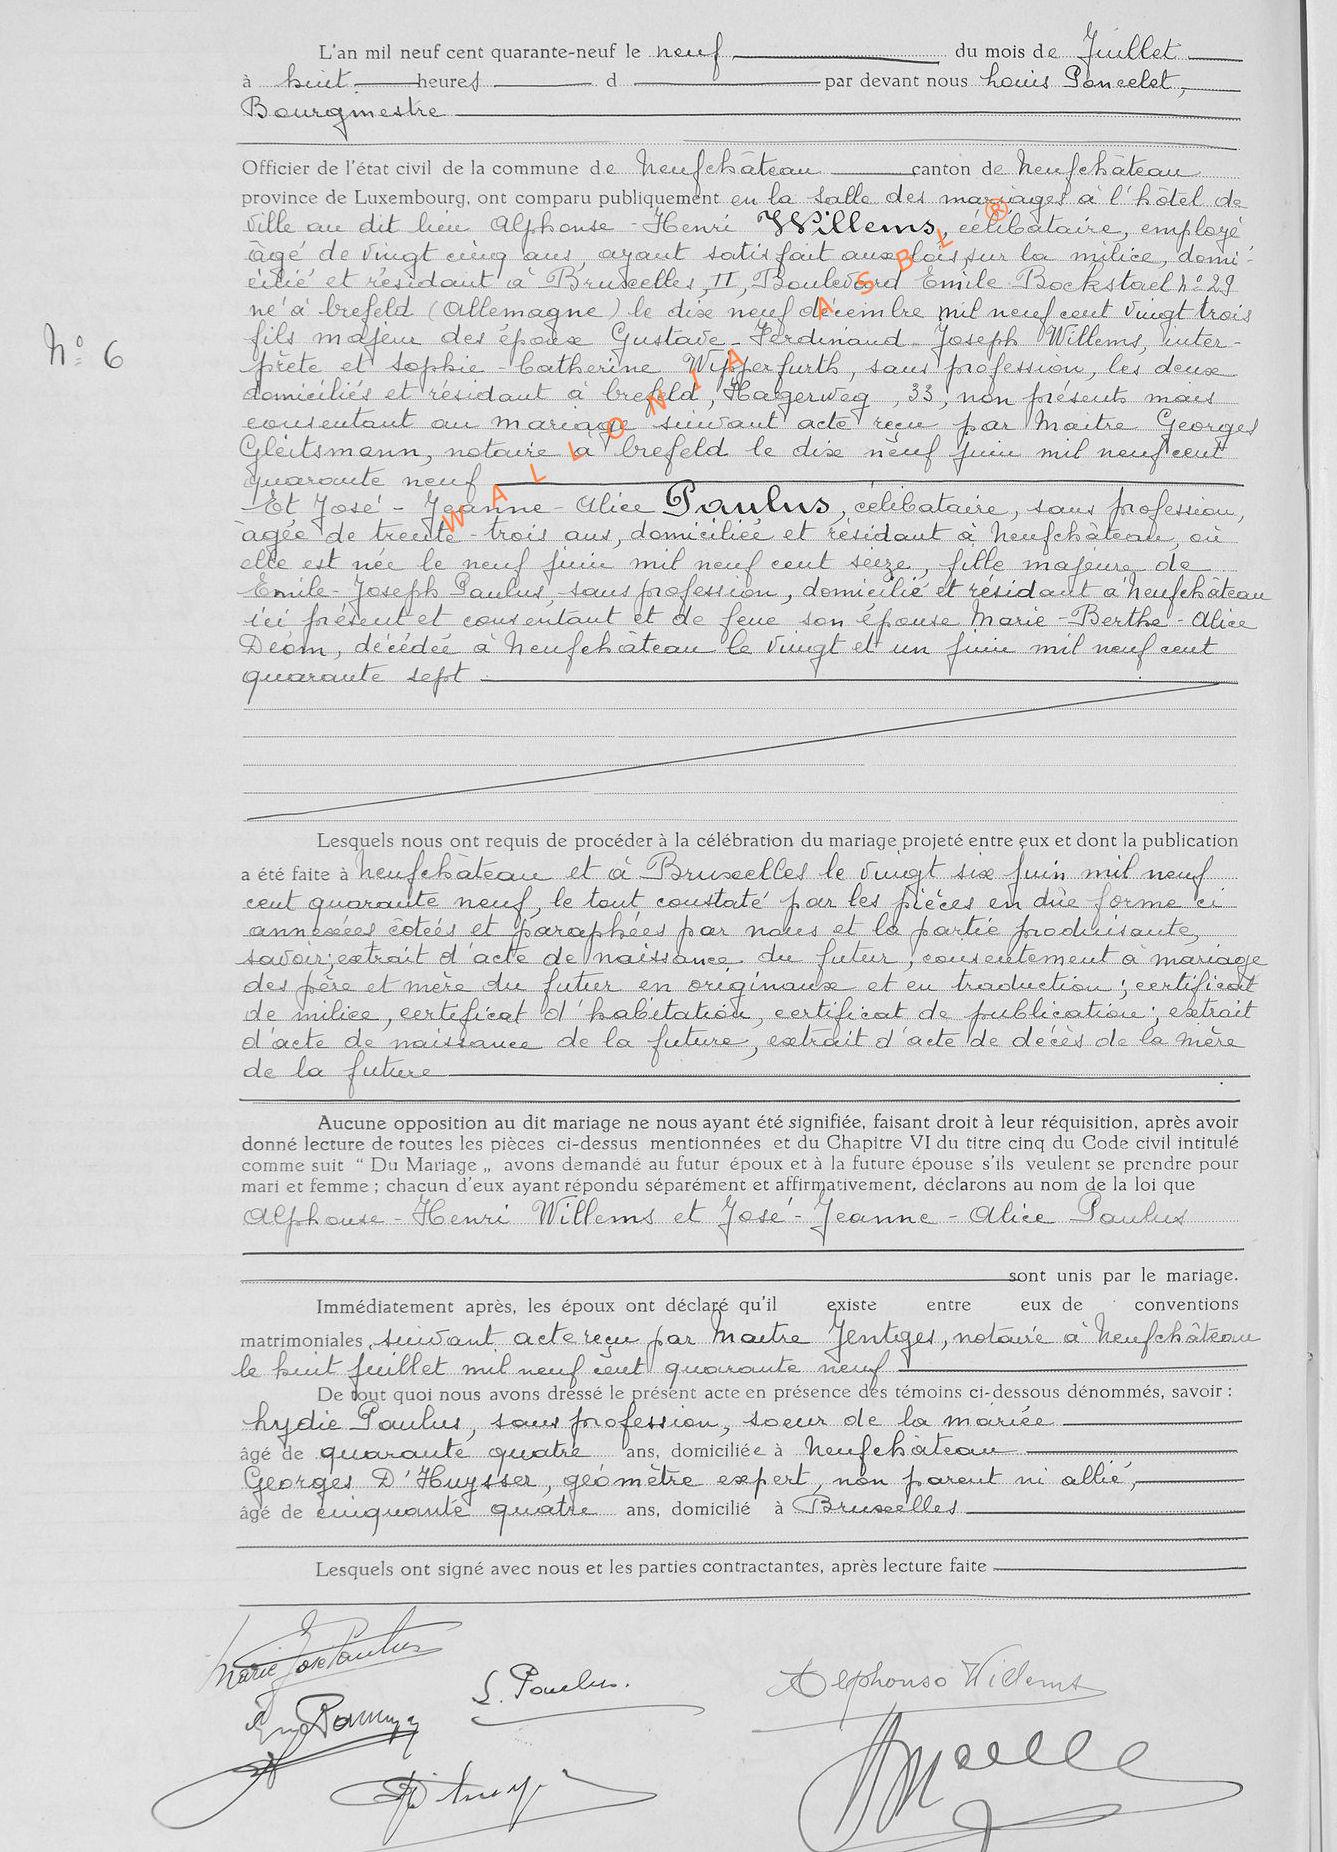 L'an mil neuf cent quarante-neuf le neuf du mois de Juillet
à huit heures d par devant nous Louis Poncelet,
Bourgmestre
Officier de l'état civil de la commune de Neufchâteau canton de Neufchâteau
province de Luxembourg, ont comparu publiquement en la salle des mariages à l'hôtel de
ville au dit lieu Alphonse-Henri Willems, célibataire, employé
âgé de vingt cinq ans, ayant satisfait aux lois sur la milice, domi-
cilié et résidant à Bruxelles, II, Boulevard Emile Bockstael n° 29
né à Crefeld (Allemagne) le dix neuf décembre mil neuf cent vingt trois
N° 6
fils majeur des époux Gustave-Ferdinand-Joseph Willems, inter-
prète et Sophie-Catherine Wipperfurth, sans profession, les deux
domiciliés et résidant à Crefeld, Hagerweg, 33, non présents mais
consentant au mariage suivant acte reçu par Maitre Georges
Gleitsmann, notaire à Crefeld le dix neuf juin mil neuf cent
quarante neuf
Et José-Jeanne-Alice Paulus, célibataire, sans profession,
âgée de trente-trois ans, domiciliée et résidant à Neufchâteau, où
elle est née le neuf juin mil neuf cent seize, fille majeure de
Emile-Joseph Paulus, sans profession, domicilié et résidant à Neufchâteau
ici présent et consentant et de feue son épouse Marie-Berthe-Alice
Déom, décédée à Neufchâteau le vingt et un juin mil neuf cent
quarante sept
WALLONIA ASBL ®
Lesquels nous ont requis de procéder à la célébration du mariage projeté entre eux et dont la publication
a été faite à Neufchâteau et à Bruxelles le vingt six juin mil neuf
cent quarante neuf, le tout constaté par les pièces en dûe forme ci
annexées cotées et paraphées par nous et la partie produisante,
savoir; extrait d'acte de naissance du futur; consentement à mariage
des père et mère du futur en originaux et en traduction; certificat
de milice, certificat d'habitation, certificat de publication; extrait
d'acte de naissance de la future, extrait d'acte de décès de la mère
de la future
Aucune opposition au dit mariage ne nous ayant été signifiée, faisant droit à leur réquisition, après avoir
donné lecture de toutes les pièces ci-dessus mentionnées et du Chapitre VI du titre cinq du Code civil intitulé
comme suit “ Du Mariage „ avons demandé au futur époux et à la future épouse s'ils veulent se prendre pour
mari et femme ; chacun d'eux ayant répondu séparément et affirmativement, déclarons au nom de la loi que
Alphonse-Henri Willems et José-Jeanne-Alice Paulus
sont unis par le mariage.
Immédiatement après, les époux ont déclaré qu'il existe entre eux de conventions
matrimoniales suivant acte reçu par Maitre Jentges, notaire à Neufchâteau
le huit juillet mil neuf cent quarante neuf
De tout quoi nous avons dressé le présent acte en présence des témoins ci-dessous dénommés, savoir :
Lydie Paulus, sans profession, soeur de la mariée
âgé de quarante quatre ans, domiciliée à Neufchâteau
Georges D'Huysser, géomètre expert, non parent ni allié,
âgé de cinquante quatre ans, domicilié à Bruxelles
Lesquels ont signé avec nous et les parties contractantes, après lecture faite
Marie José Paulus
L. Paulus.
Alphonse Willems